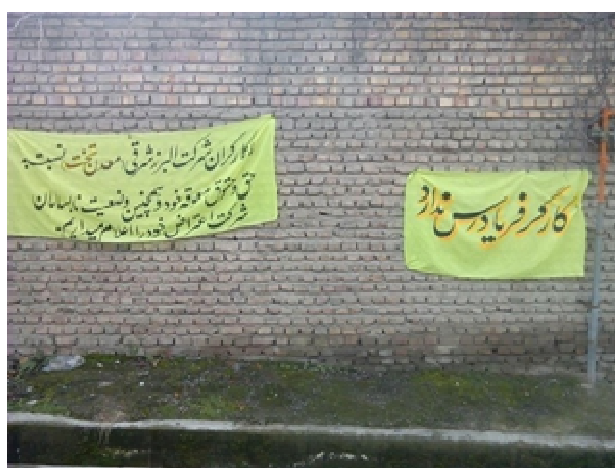 ما کارگران شرکت البرز شرقی معدن تخت نسبت به
حق و حقوق معوقه خود و همچنین وضعیت نابسامان
شرکت اعتراض خود را اعلام میداریم.
کارگر فریادرس ندارد